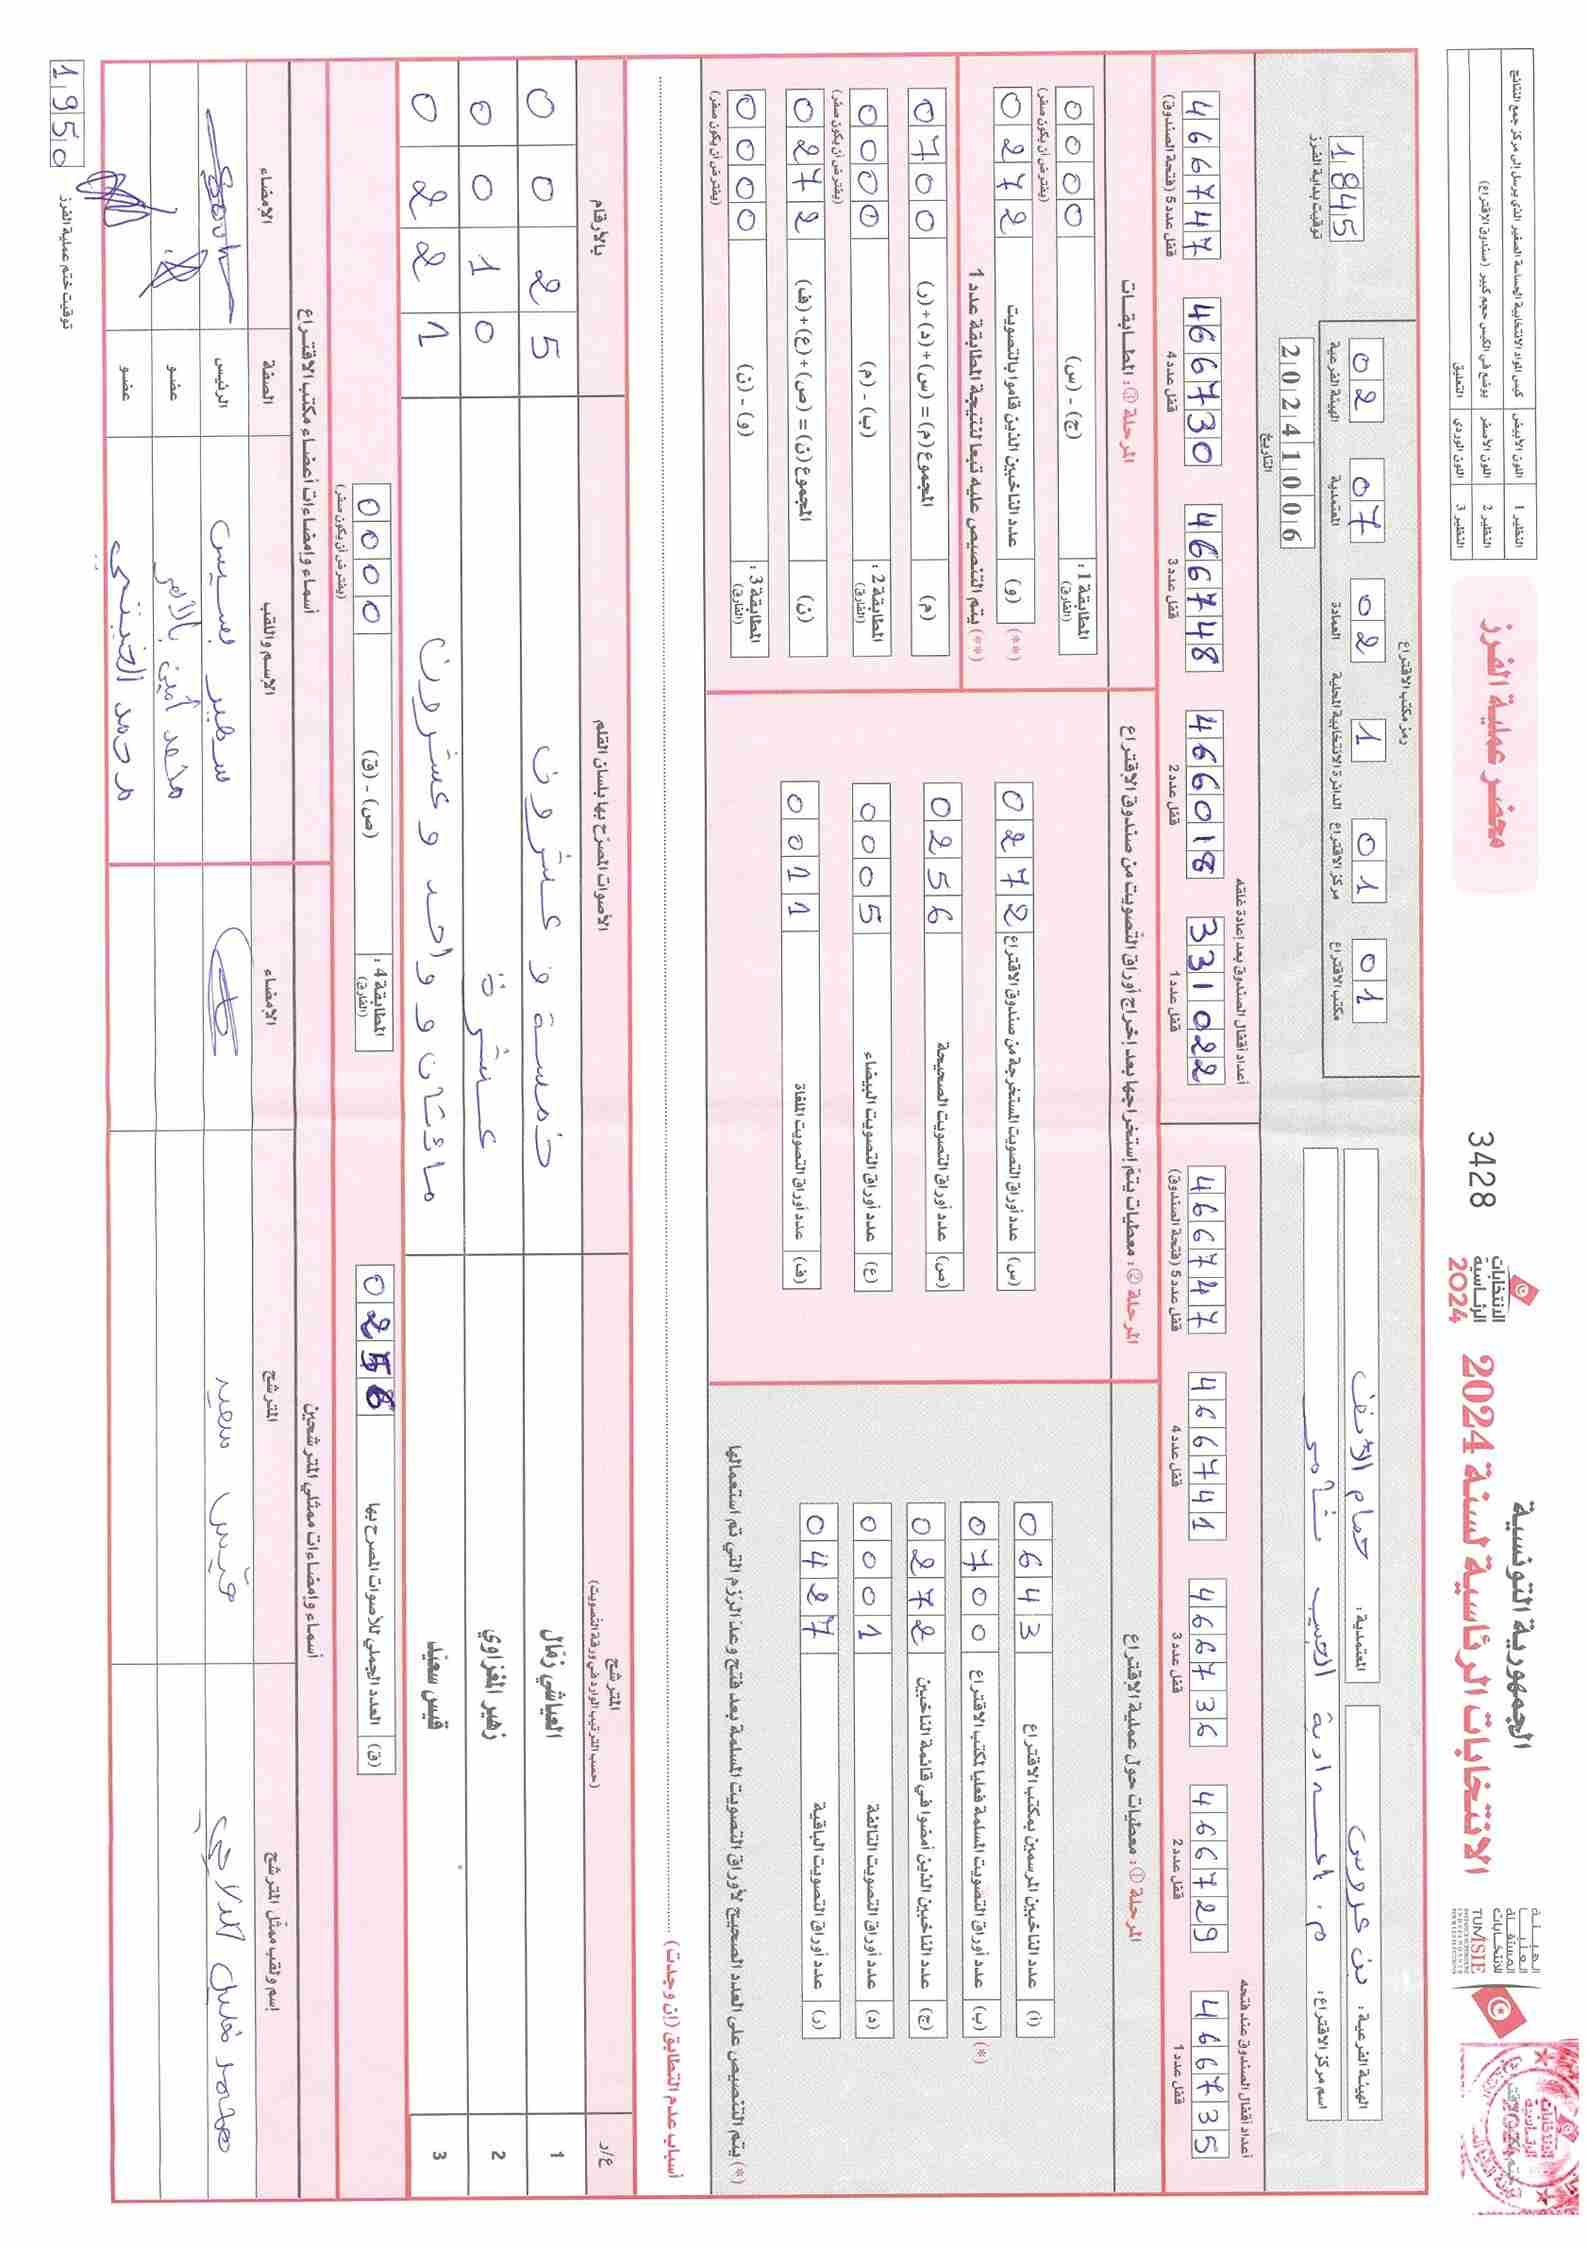 الجمهورية التونسية
الانتخابات الرئاسية لسنة 2024
الانتخابات
الرئاسية
2024
3428
محضر عملية الفرز
النظير 1 اللون الأبيض كيس المواد الانتخابية الحساسة الصغير الذي يرسل إلى مركز جمع النتائج
النظير 2 اللون الأصفر يوضع في الكيس حجم كبير (صندوق الاقتراع)
النظير 3 اللون الوردي التعليق
الهيئة الفرعية: بن عروس
المعتمدية: حمام الأنف
اسم مركز الاقتراع:
رمز مكتب الاقتراع
02 الهيئة الفرعية
07 المعتمدية
02 العمادة
1 الدائرة الانتخابية المحلية
01 مركز الاقتراع
01 مكتب الاقتراع
20241006
التاريخ
1845
توقيت بداية الفرز
أعداد أقفال الصندوق عند فتحه
466735 قفل عدد 1
466729 قفل عدد 2
466736 قفل عدد 3
466741 قفل عدد 4
466747 قفل عدد 5 (فتحة الصندوق)
أعداد أقفال الصندوق بعد إعادة غلقه
331022 قفل عدد 1
466018 قفل عدد 2
466748 قفل عدد 3
466730 قفل عدد 4
466747 قفل عدد 5 (فتحة الصندوق)
المرحلة ①: معطيات حول عملية الاقتراع
(أ) عدد الناخبين المرسمين بمكتب الاقتراع 0643
(*) (ب) عدد أوراق التصويت المسلمة فعليا لمكتب الاقتراع 0700
(ج) عدد الناخبين الذين أمضوا في قائمة الناخبين 0272
(د) عدد أوراق التصويت التالفة 0001
(ر) عدد أوراق التصويت الباقية 0427
(*) يتم التنصيص على العدد الصحيح لأوراق التصويت المسلمة بعد فتح وعد الرزم التي تم استعمالها
المرحلة ②: معطيات يتم إستخراجها بعد إخراج أوراق التصويت من صندوق الاقتراع
(س) عدد أوراق التصويت المستخرجة من صندوق الاقتراع 0272
(ص) عدد أوراق التصويت الصحيحة 0256
(ع) عدد أوراق التصويت البيضاء 0005
(ف) عدد أوراق التصويت الملغاة 0011
المرحلة ③: المطابقات
المطابقة 1: (الفارق) (ج) - (س) 0000
(يفترض أن يكون صفر)
(**) (و) عدد الناخبين الذين قاموا بالتصويت 0272
(**) يتم التنصيص عليه تبعا لنتيجة المطابقة عدد 1
(م) المجموع (م) = (س)+(د)+(ر) 0700
المطابقة 2: (الفارق) (ب) - (م) 0000
(يفترض أن يكون صفر)
(ن) المجموع (ن) = (ص)+(ع)+(ف) 0272
المطابقة 3: (الفارق) (و) - (ن) 0000
(يفترض أن يكون صفر)
أسباب عدم التطابق (إن وجدت)
ع/ر المترشح (حسب الترتيب الوارد في ورقة التصويت) الأصوات المصرّح بها بلسان القلم بالأرقام
1 العياشي زمّال خمسة و عشرون 0025
2 زهير المغزاوي عشرة 0010
3 قيس سعيّد مائتان و واحد وعشرون 0221
(ق) العدد الجملي للأصوات المصرح بها 0256
المطابقة 4: (الفارق) (ص) - (ق) 0000
(يفترض أن يكون صفر)
أسماء وإمضاءات ممثلي المترشحين
إسم ولقب ممثّل المترشح المترشح الإمضاء
قيس سعيد
أسماء وإمضاءات أعضاء مكتب الاقتراع
الإسم واللقب الصفة الإمضاء
سمير بسيس الرئيس
محمد أمين عضو
محمد عضو
1950
توقيت ختم عملية الفرز